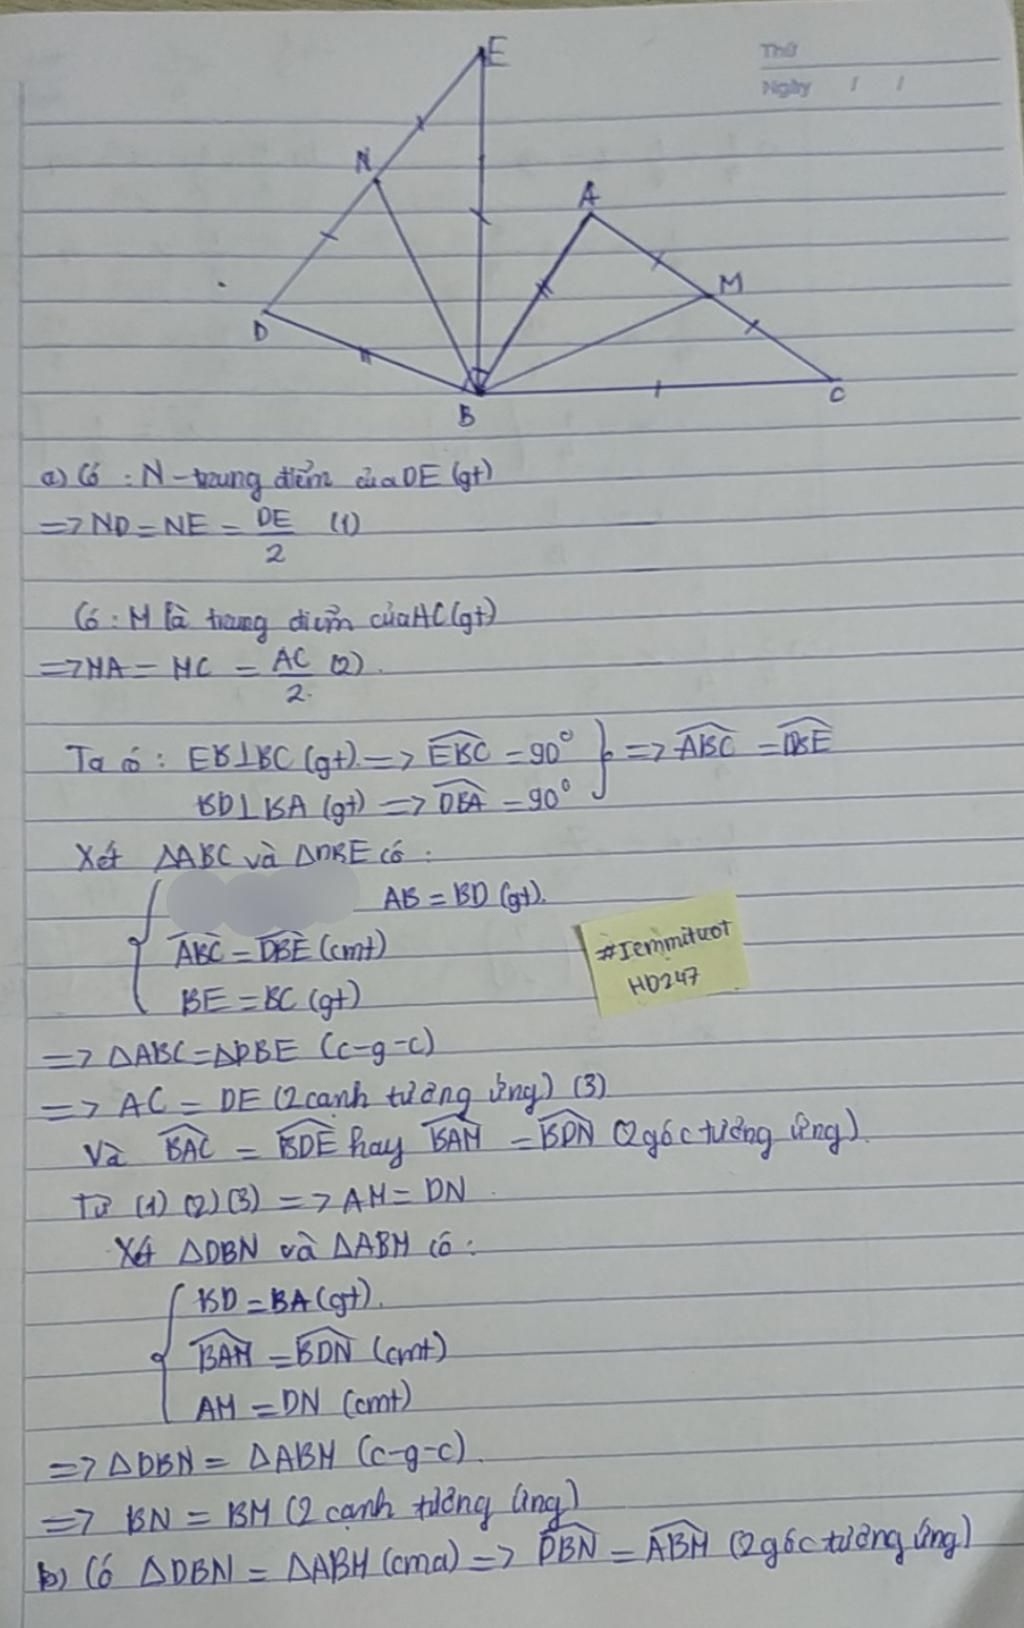 Thứ
Ngày / /
E
N
A
M
D
B
C
a) Có : N - trung điểm của DE (gt)
=> ND = NE = DE/2 (1)
Có : M là trung điểm của AC (gt)
=> MA = MC = AC/2 (2).
Ta có : EB⊥BC (gt) => \widehat{EBC} = 90° } => \widehat{ABC} = \widehat{DBE}
BD⊥BA (gt) => \widehat{DBA} = 90°
Xét ΔABC và ΔDBE có :
AB = BD (gt).
\widehat{ABC} = \widehat{DBE} (cmt)
BE = BC (gt)
#Iemmituot
HD247
=> ΔABC = ΔDBE (c-g-c)
=> AC = DE (2 cạnh tương ứng) (3)
Và \widehat{BAC} = \widehat{BDE} hay \widehat{BAM} = \widehat{BDN} (2 góc tương ứng).
Từ (1) (2) (3) => AM = DN
Xét ΔDBN và ΔABM có :
BD = BA (gt).
\widehat{BAM} = \widehat{BDN} (cmt)
AM = DN (cmt)
=> ΔDBN = ΔABM (c-g-c).
=> BN = BM (2 cạnh tương ứng)
b) Có ΔDBN = ΔABM (cma) => \widehat{DBN} = \widehat{ABM} (2 góc tương ứng)